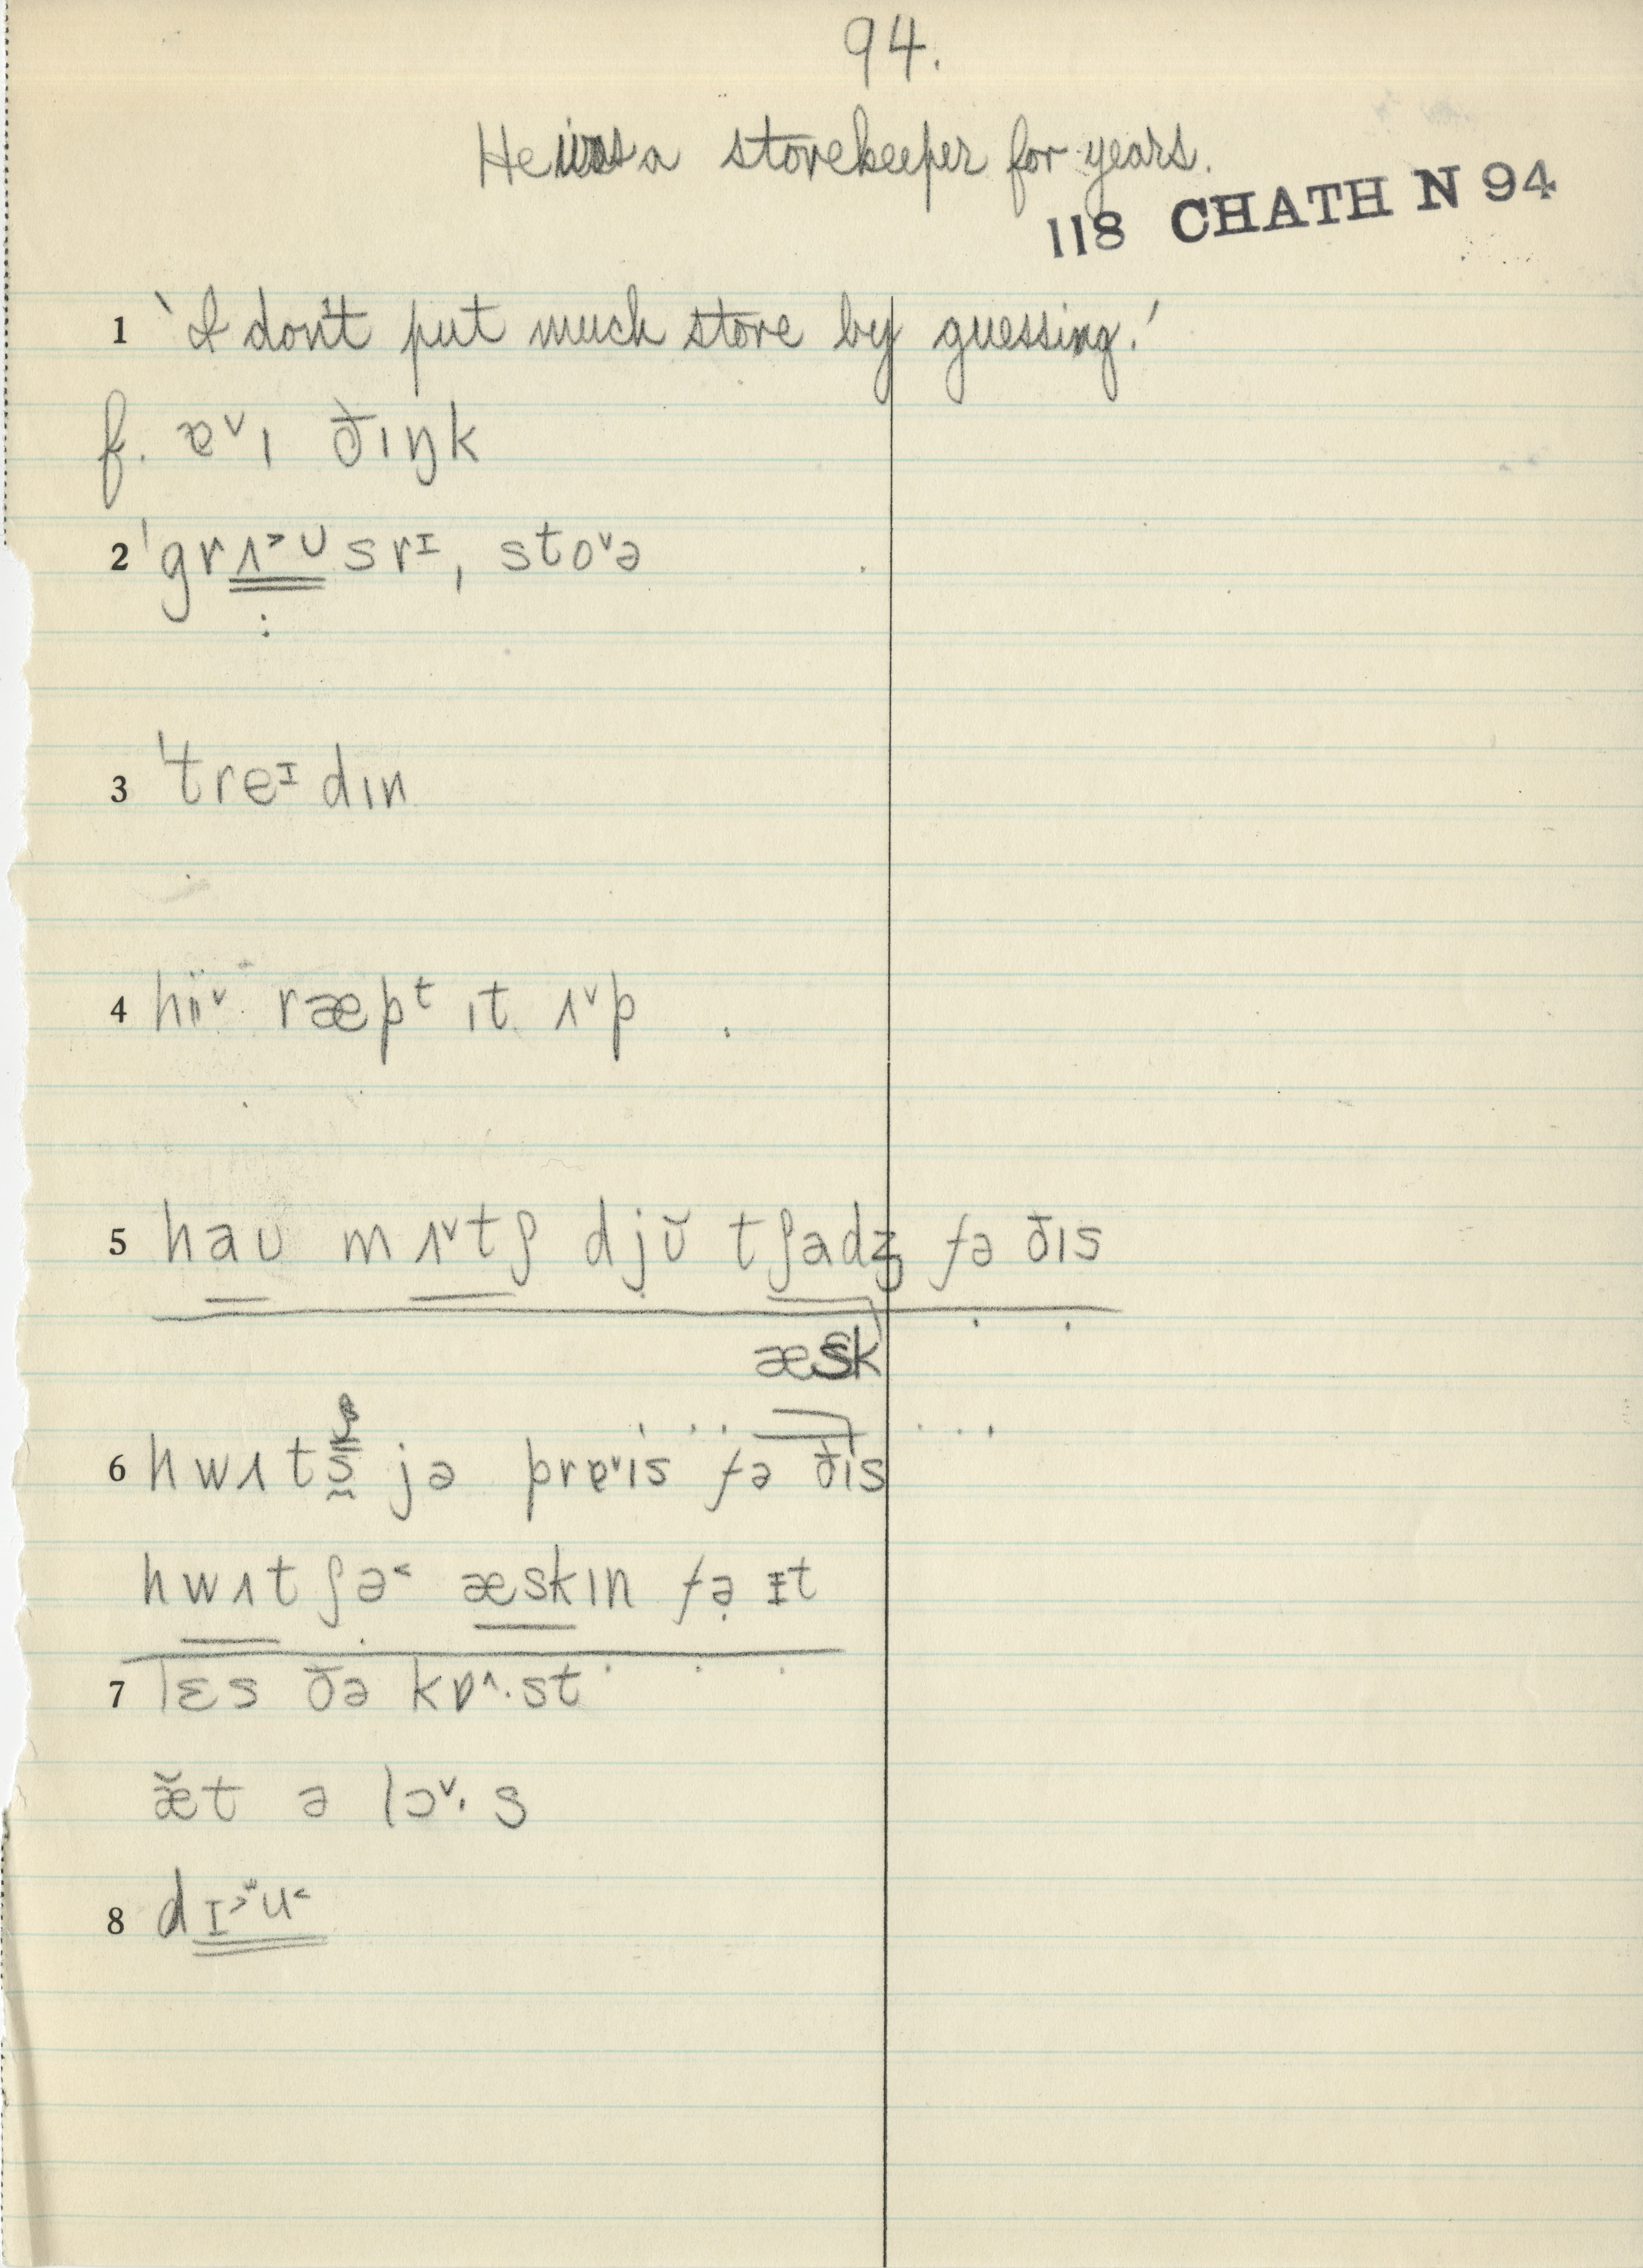 94.
He was a storekeeper for years.
118 CHATH N 94
1 'I don't put much store by guessing.'
f. ɐᵛɪ ðɪŋk
2 ˈgrʌ˃ʊsrᶦ, stoᵛə
3 ˈtreᶦdɪn
4 hiïᵛ ræpᵗ ɪt ʌᵛp
5 haʊ mʌᵛtʃ djŭ tʃadʒ fə ðɪs
æsk
6 hwʌts jə prɐᵛɪs fə ðɪs
hwʌtʃə˂ æskɪn fə ɪt
7 lɛs ðə kɒ^·st
æ̆t ə lɔᵛ·s
8 dɪ˃ʷu˂